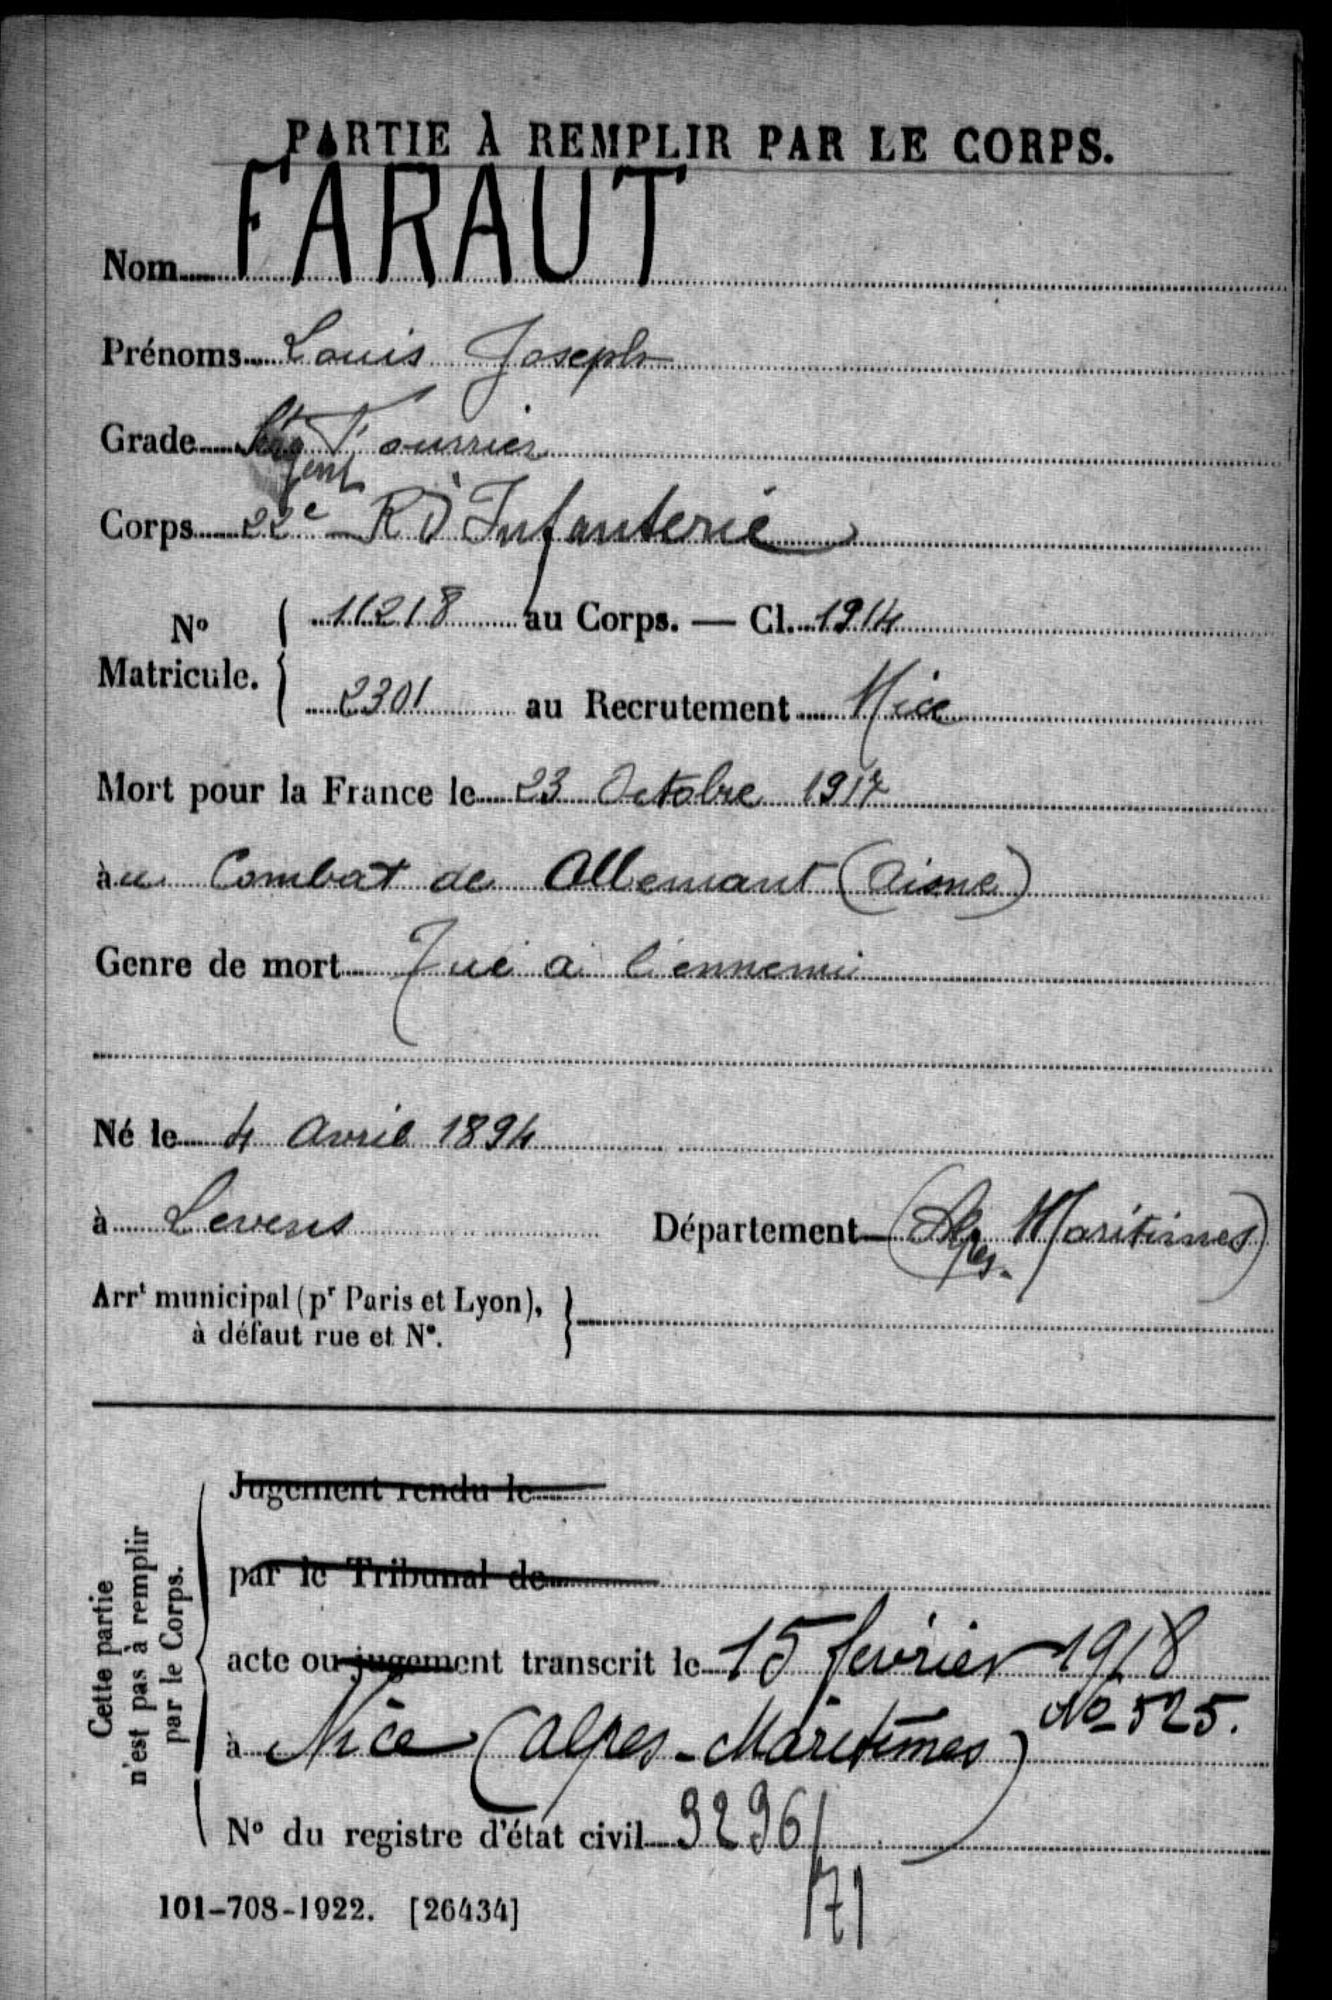 PARTIE À REMPLIR PAR LE CORPS.
Nom FARAUT
Prénoms Louis Joseph
Grade Sergent Fourrier
Corps 22e R D'Infanterie
No Matricule. 11218 au Corps. — Cl. 1914
2301 au Recrutement Nice
Mort pour la France le 23 Octobre 1917
àu Combat de Allemant (Aisne)
Genre de mort Tué à l'ennemi
Né le 4 Avril 1894
à Levens Département (Alpes-Maritimes)
Arrt municipal (pr Paris et Lyon),
à défaut rue et No.
Cette partie
n'est pas à remplir
par le Corps.
Jugement rendu le
par le Tribunal de
acte ou jugement transcrit le 15 février 1918
à Nice (Alpes-Maritimes) No 525.
No du registre d'état civil 9296/
71
101-708-1922. [26434]